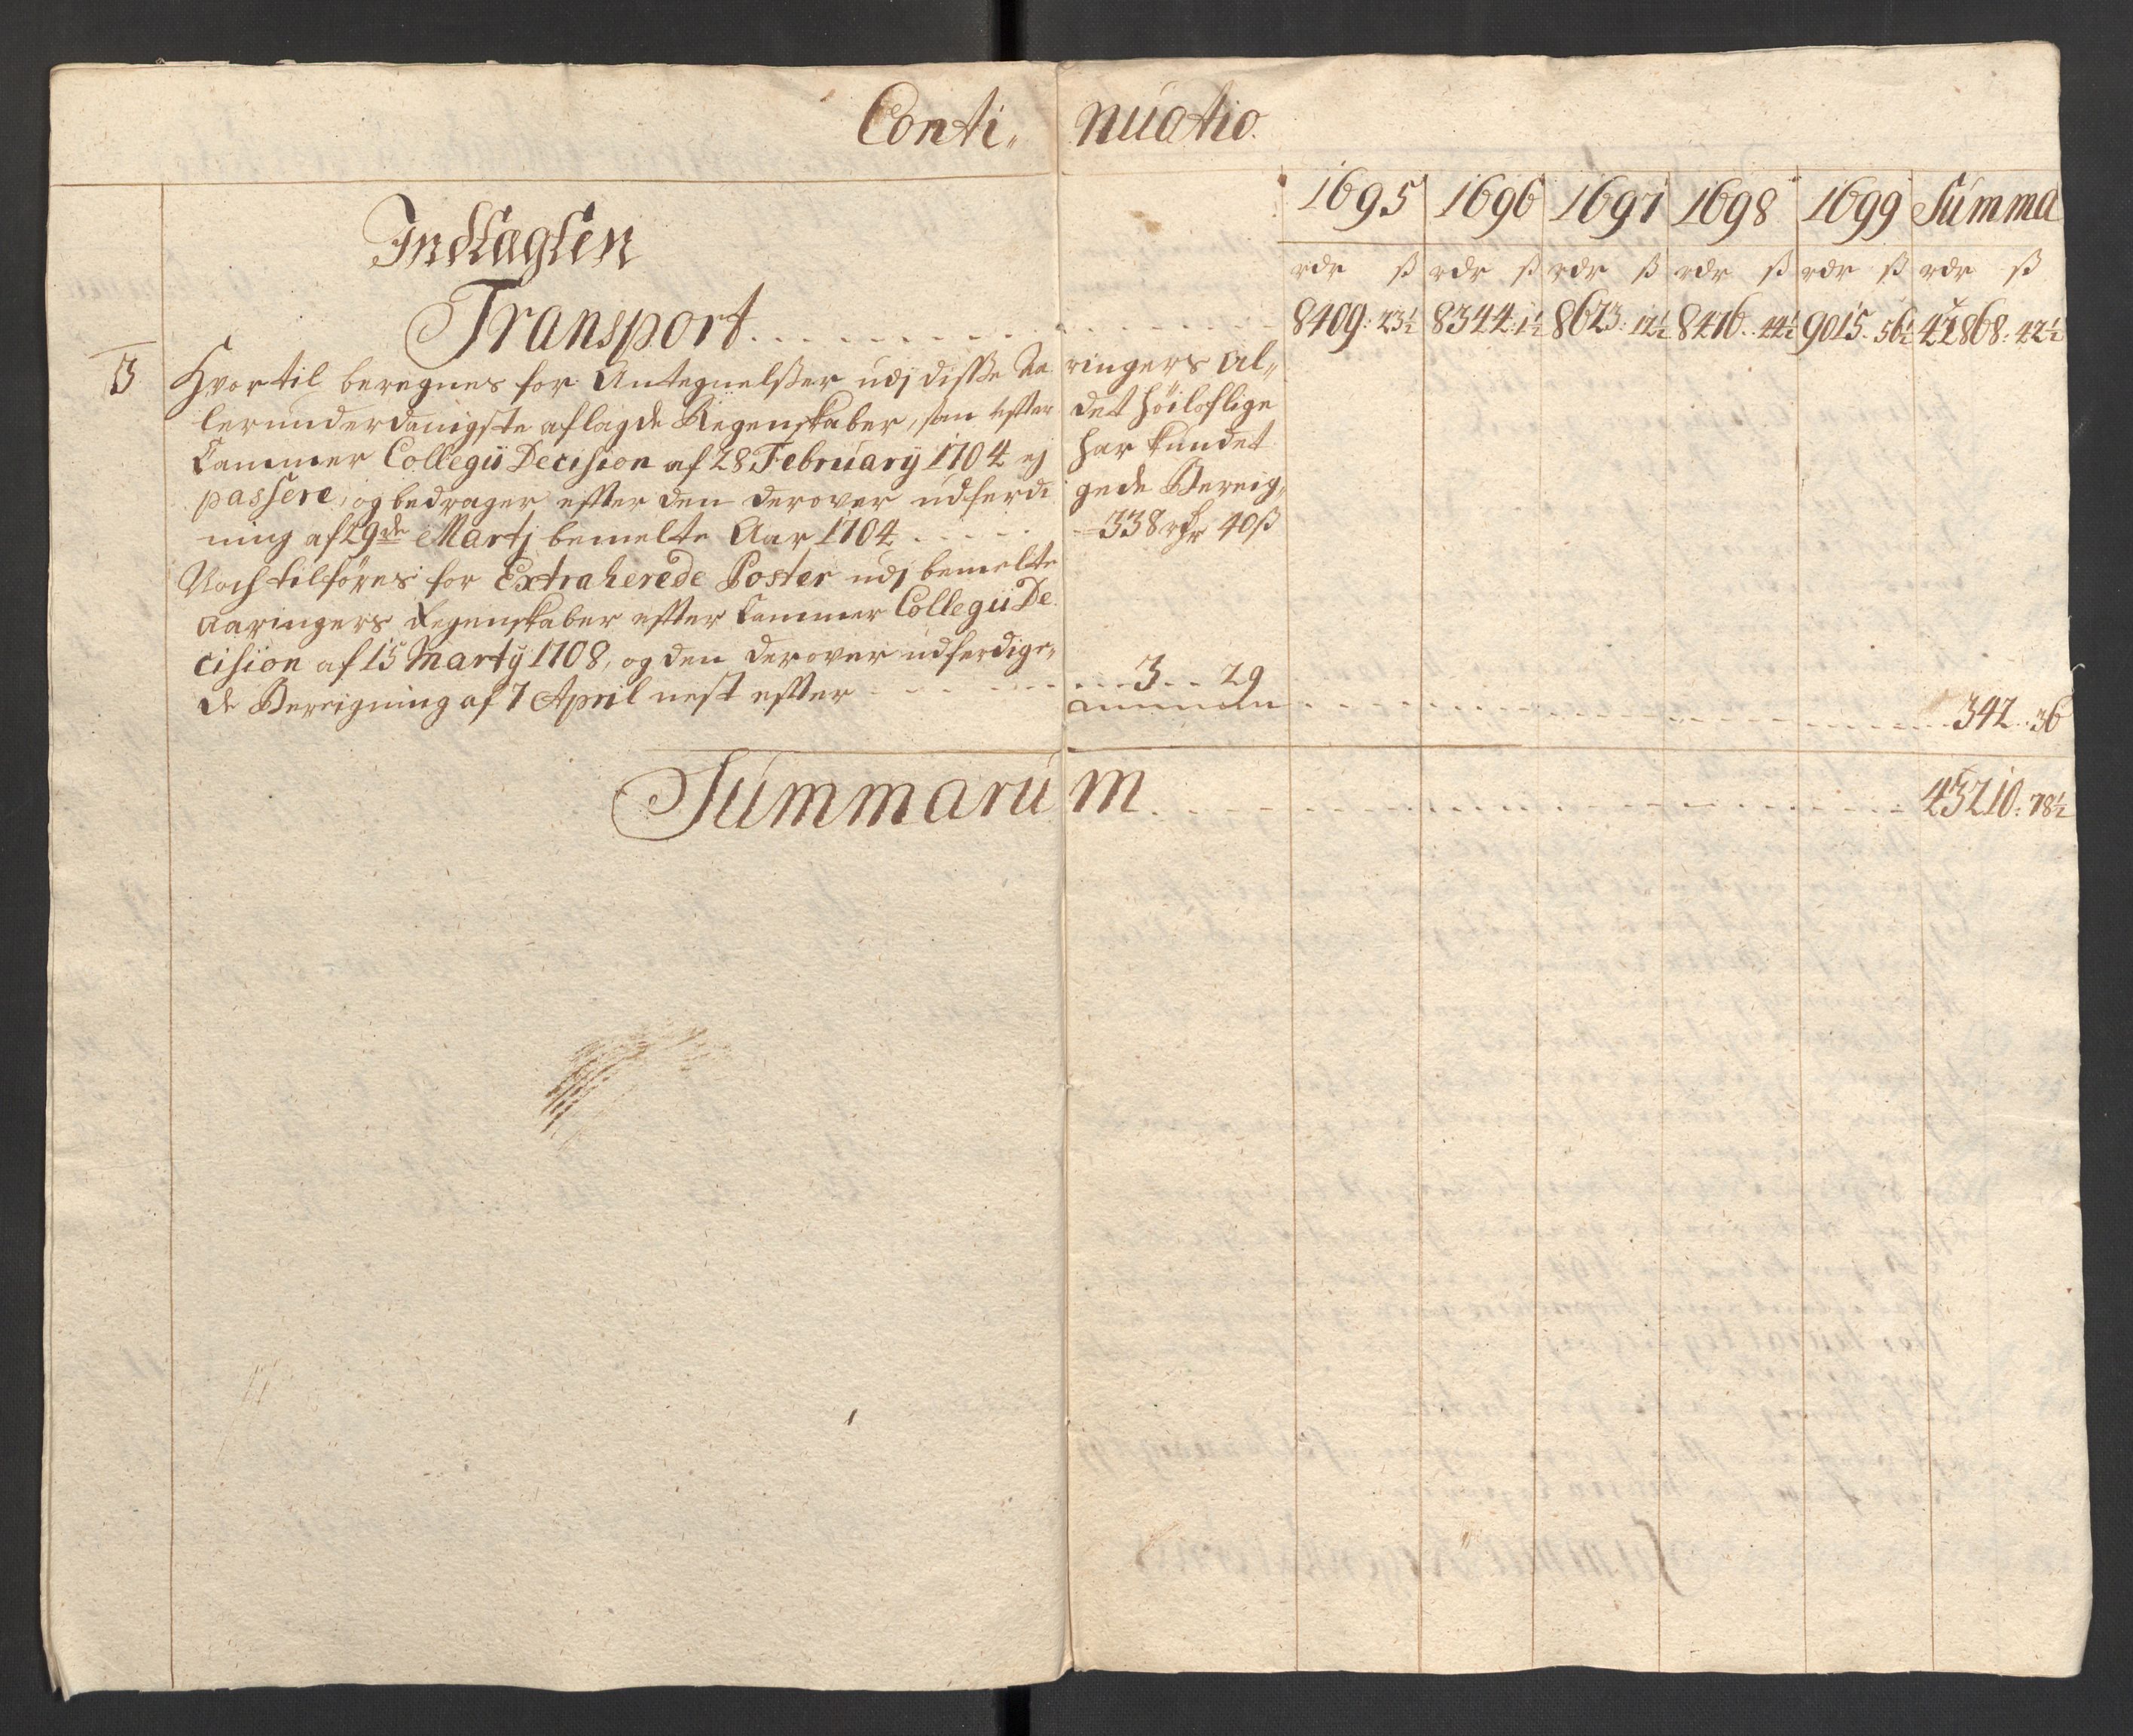 Conti„ nuatio.
1695 1696 1697 1698 1699 Summa
Indtagten
rdr ß rdr ß rdr ß rdr ß rdr ß rdr ß
Transport 8409: 23½ 8344: 1½ 8623: 12½ 8476.. 44½ 9015.. 56½ 42868: 42½
3 Hvortil beregnes for Antegnelsser udj disse Aa ringers Al„
lerunderdanigste aflagde Regenskaber, som efter det höiloflige
Cammer Collegii Decision af 28 February 1704 ej har kundet
passere, og bedrager efter den derover udferdi gede Bereig„
ning af 29de Martj bemelte Aar 1704 338 rdr 40 ß
Noch tilföres for Extraherede Poster udj bemelte
Aaringers Regenskaber efter Cammer Collegii De
cision af 15 Martij 1708, og den derover udferdige„
de Bereigning af 7 April nest efter 3 .. 29
342.. 36
Summarum 43210: 78½